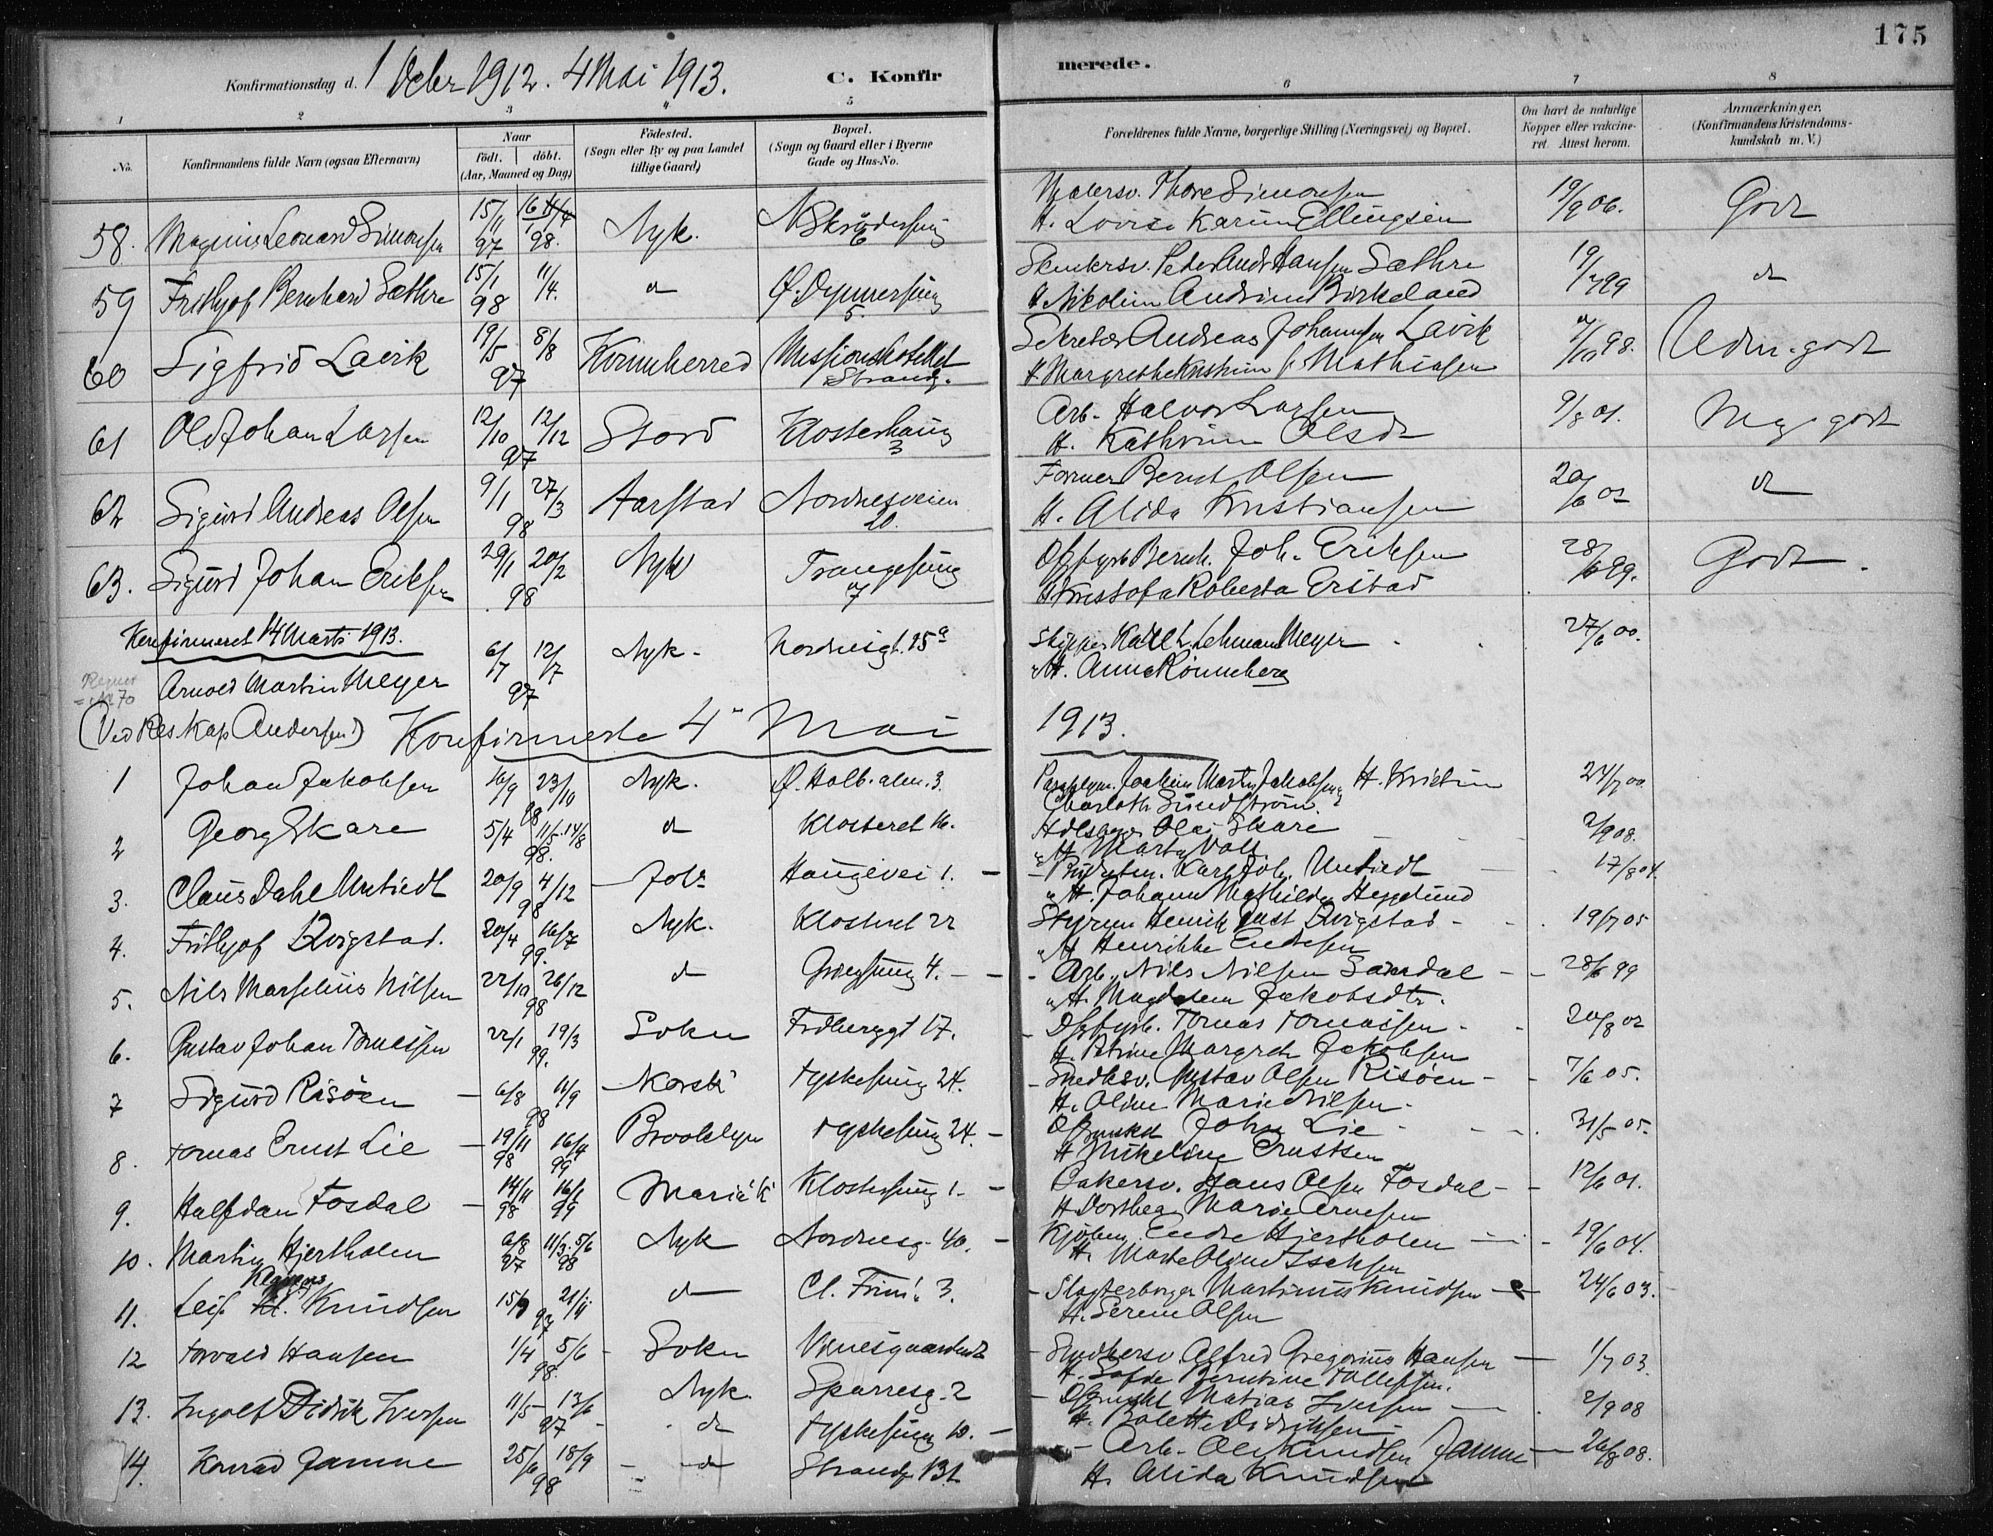 175
Konfirmationsdag d. 1 Decbr 1912. 4 Mai 1913. C. Konfirmerede.
1 2 3 4 5 6 7 8
No. Konfirmandens fulde Navn (ogsaa Efternavn) Naar födt. döbt. (Aar, Maaned og Dag) Födested. (Sogn eller By og paa Landet tillige Gaard) Bopæl. (Sogn og Gaard eller i Byerne Gade og Hus-No. Forældrenes fulde Navne, borgerlige Stilling (Næringsvei) og Bopæl. Om havt de naturlige Kopper eller vaccineret. Attest herom. Anmærkninger. (Konfirmandens Kristendomskundskab m. V.)
58. Magnus Leonard Simonsen 15/11 97 16/1 98. Nyk. N. Skrædersmug 6 Thore Simonsen 19/9 06. Godt
H. Lovise Karine Ellingsen
59 Frithjof Bernhard Sæthre 15/1 98 11/4. d Ø. Dypnersmug 5. Peder Andr Hansen Sæthre 19/7 99 d
H Nikoline Andrine Birkeland
60 Sigfrid Lavik 19/5 8/8 97 Kvinnherred Missionshotellet Strandg. Sekretær Andreas Johannesen Lavik /10 98. Udm. godt
H Margrethe Kristine Mathiasen
61 Ole Johan Larsen 12/10 12/12 97 Stord Klosterhaug 3 Arb. Halvor Larsen 9/8 01. Meg. godt
H. Kathrine Olsdt
62 Sigurd Andreas Olsen 9/1 27/3 98 Aarstad Nordnesveien 20. Former Bernt Olsen 20/6 02 d
H. Alida Kristiansen
63. Sigurd Johan Eriksen 29/1 20/2 98 Nyk Trangesmug 7 Joh. Eriksen 28/6 99. Godt.
Kristofa Roberta Erstad
Konfirmeret 14 Marts 1913.
Arnold Martin Meyer 6/7 12/7 97 Nyk. Nordnesgt. 25a Skipper Karl L. Lehman Meyer 27/6 00.
H. Anna Rønneberg
(Ved Res Kap Andersen) Konfirmerede 4de Mai 1913.
1 Johan Jakobsen 16/9 23/10 98 Nyk. Ø. Holb. alm. 3. Joakim Martin Jakobsen, H. Kristine 24/7 00.
Charlotte Sundstrøm
2 Georg Skare 5/4 11/5. 14/8 98. d Klosteret 16. Olai Skare 2/9 08.
H Marta Voll
3. Claus Dahl Unstiedt 20/9 4/12 98 Joh. Haugevei 1. Karl Joh. Unstiedt 17/8 04.
H. Johanne Mathilde Hegglund
4. Frithjof Qvigstad. 20/4 16/7 99. Nyk. Klosteret 22 Styrm Henrik Qvigstad 19/7 05
H Henrikke Endresen
5. Nils Marselius Nilsen 22/10 26/12 98 d 4. Arb. Nils Nilsen Sandal 28/6 99
H. Magdalene Jakobsdtr.
6. Gustav Johan Tomassen 22/1 19/3 99. Soken 17. Tomas Tomassen 20/8 02
H. Petrine Margrete Jakobsen
7 Sigurd Risöen 6/8 11/9 98 Korsk. Tyskesmug 24. Snedksv. Gustav Olsen Risöen 7/6 05.
H. Oline Marie Nilsen.
8. Tomas Ernst Lie 19/11 98 16/4 99 Brooklyn Tyskesmug 24. Johan Lie 31/5 05.
H Mikeline Ernstsen
9. Halfdan Fosdal 14/11 98 16/1 99 Mariæk. Klostersmug 1. Hans Olsen Fosdal 12/6 01.
H Dorthea Marie Arnesen
10. Martin Hjertholm 6/8 97 11/3. 5/6 98 Nyk Nordnesg. 40. Kjøbm. Endre Hjertholm 19/6 04.
H. Marte Oline Isaksen
11. Leif Knudsen 15/9 21/11 97 d Cl. 3. Slagterborger Martinus Knudsen 24/6 03.
H. Serine Olsen
12 Torvald Hansen 1/4 5/6 98. Soken Snedkersv. Alfred Gregorius Hansen 1/7 03
H. Bertine Tollefsen.
13. Ingolf Didrik Iversen 11/5 13/6 97 Nyk. Sparresg. 2 Matias Iversen 2/9 08
H. Bolette Didriksen
d Tyskesmug 10.
14. Konrad Jamne 25/6 18/9 98 d Strandg 131 Arb. Ole Knudsen Jamne 26/8 08.
H. Alida Knudsen